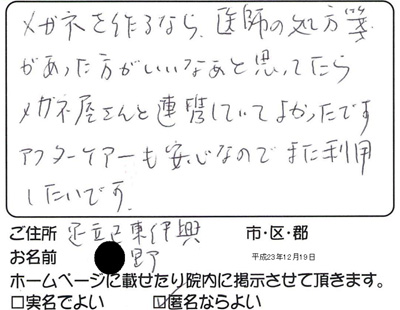 メガネを作るなら、医師の処方箋
があった方がいいなあと思ってたら
メガネ屋さんと連携していてよかったです
アフターケアーも安心なのでまた利用
したいです。
ご住所 足立区東伊興 市・区・郡
お名前 野 平成23年12月19日
ホームページに載せたり院内に掲示させて頂きます。
□実名でよい ☑匿名ならよい